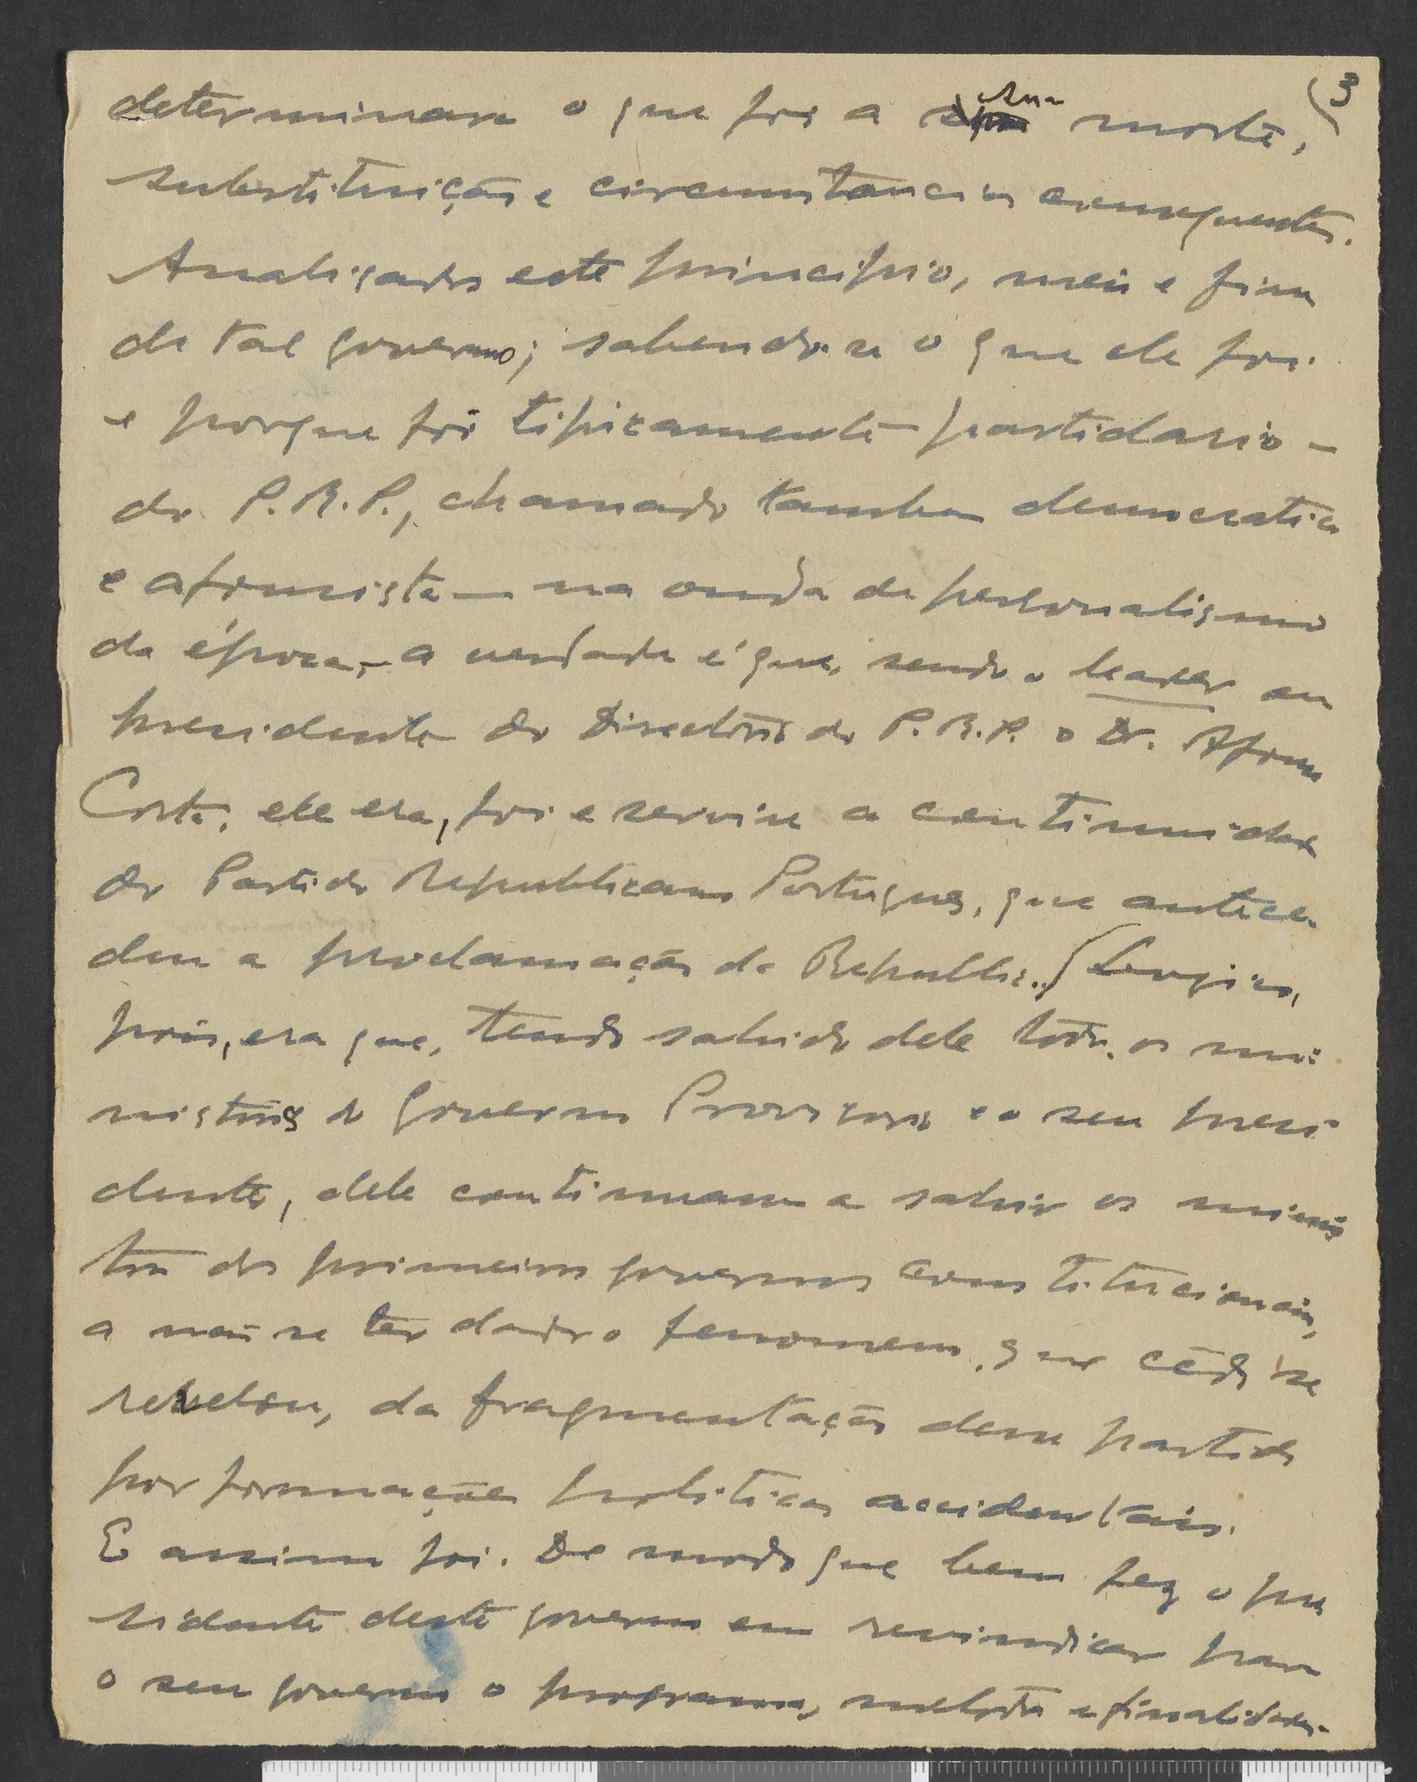 (3
determinaram o que foi a sua morte,
substituição e circumstancias consequentes.
Analisados este principio, meio e fim
de tal governo; sabendo-se o que ele foi
e porque foi tipicamente partidario —
do P.R.P., chamado tambem democratico
e afonsista — na onda de personalismo
da época, — a verdade é que, sendo o leader ou
presidente do Directorio do P.R.P. o Dr. Afonso
Costa, ele era, foi e servia a continuidade
do Partido Republicano Portuguez, que antece-
deu a proclamação da Republica. Logico,
pois, era que, tendo sahido dele todos os mi-
nistros do Governo Provisorio e o seu presi-
dente, dele continuaram a sahir os minis-
tros dos primeiros governos constitucionais,
a não se ter dado o fenomeno, que cêdo se
revelou, da fragmentação desse partido
por formações politicas accidentais.
E assim foi. De modo que bem fez o pre-
sidente deste governo em revindicar para
o seu governo o programa, metodos e finalidades